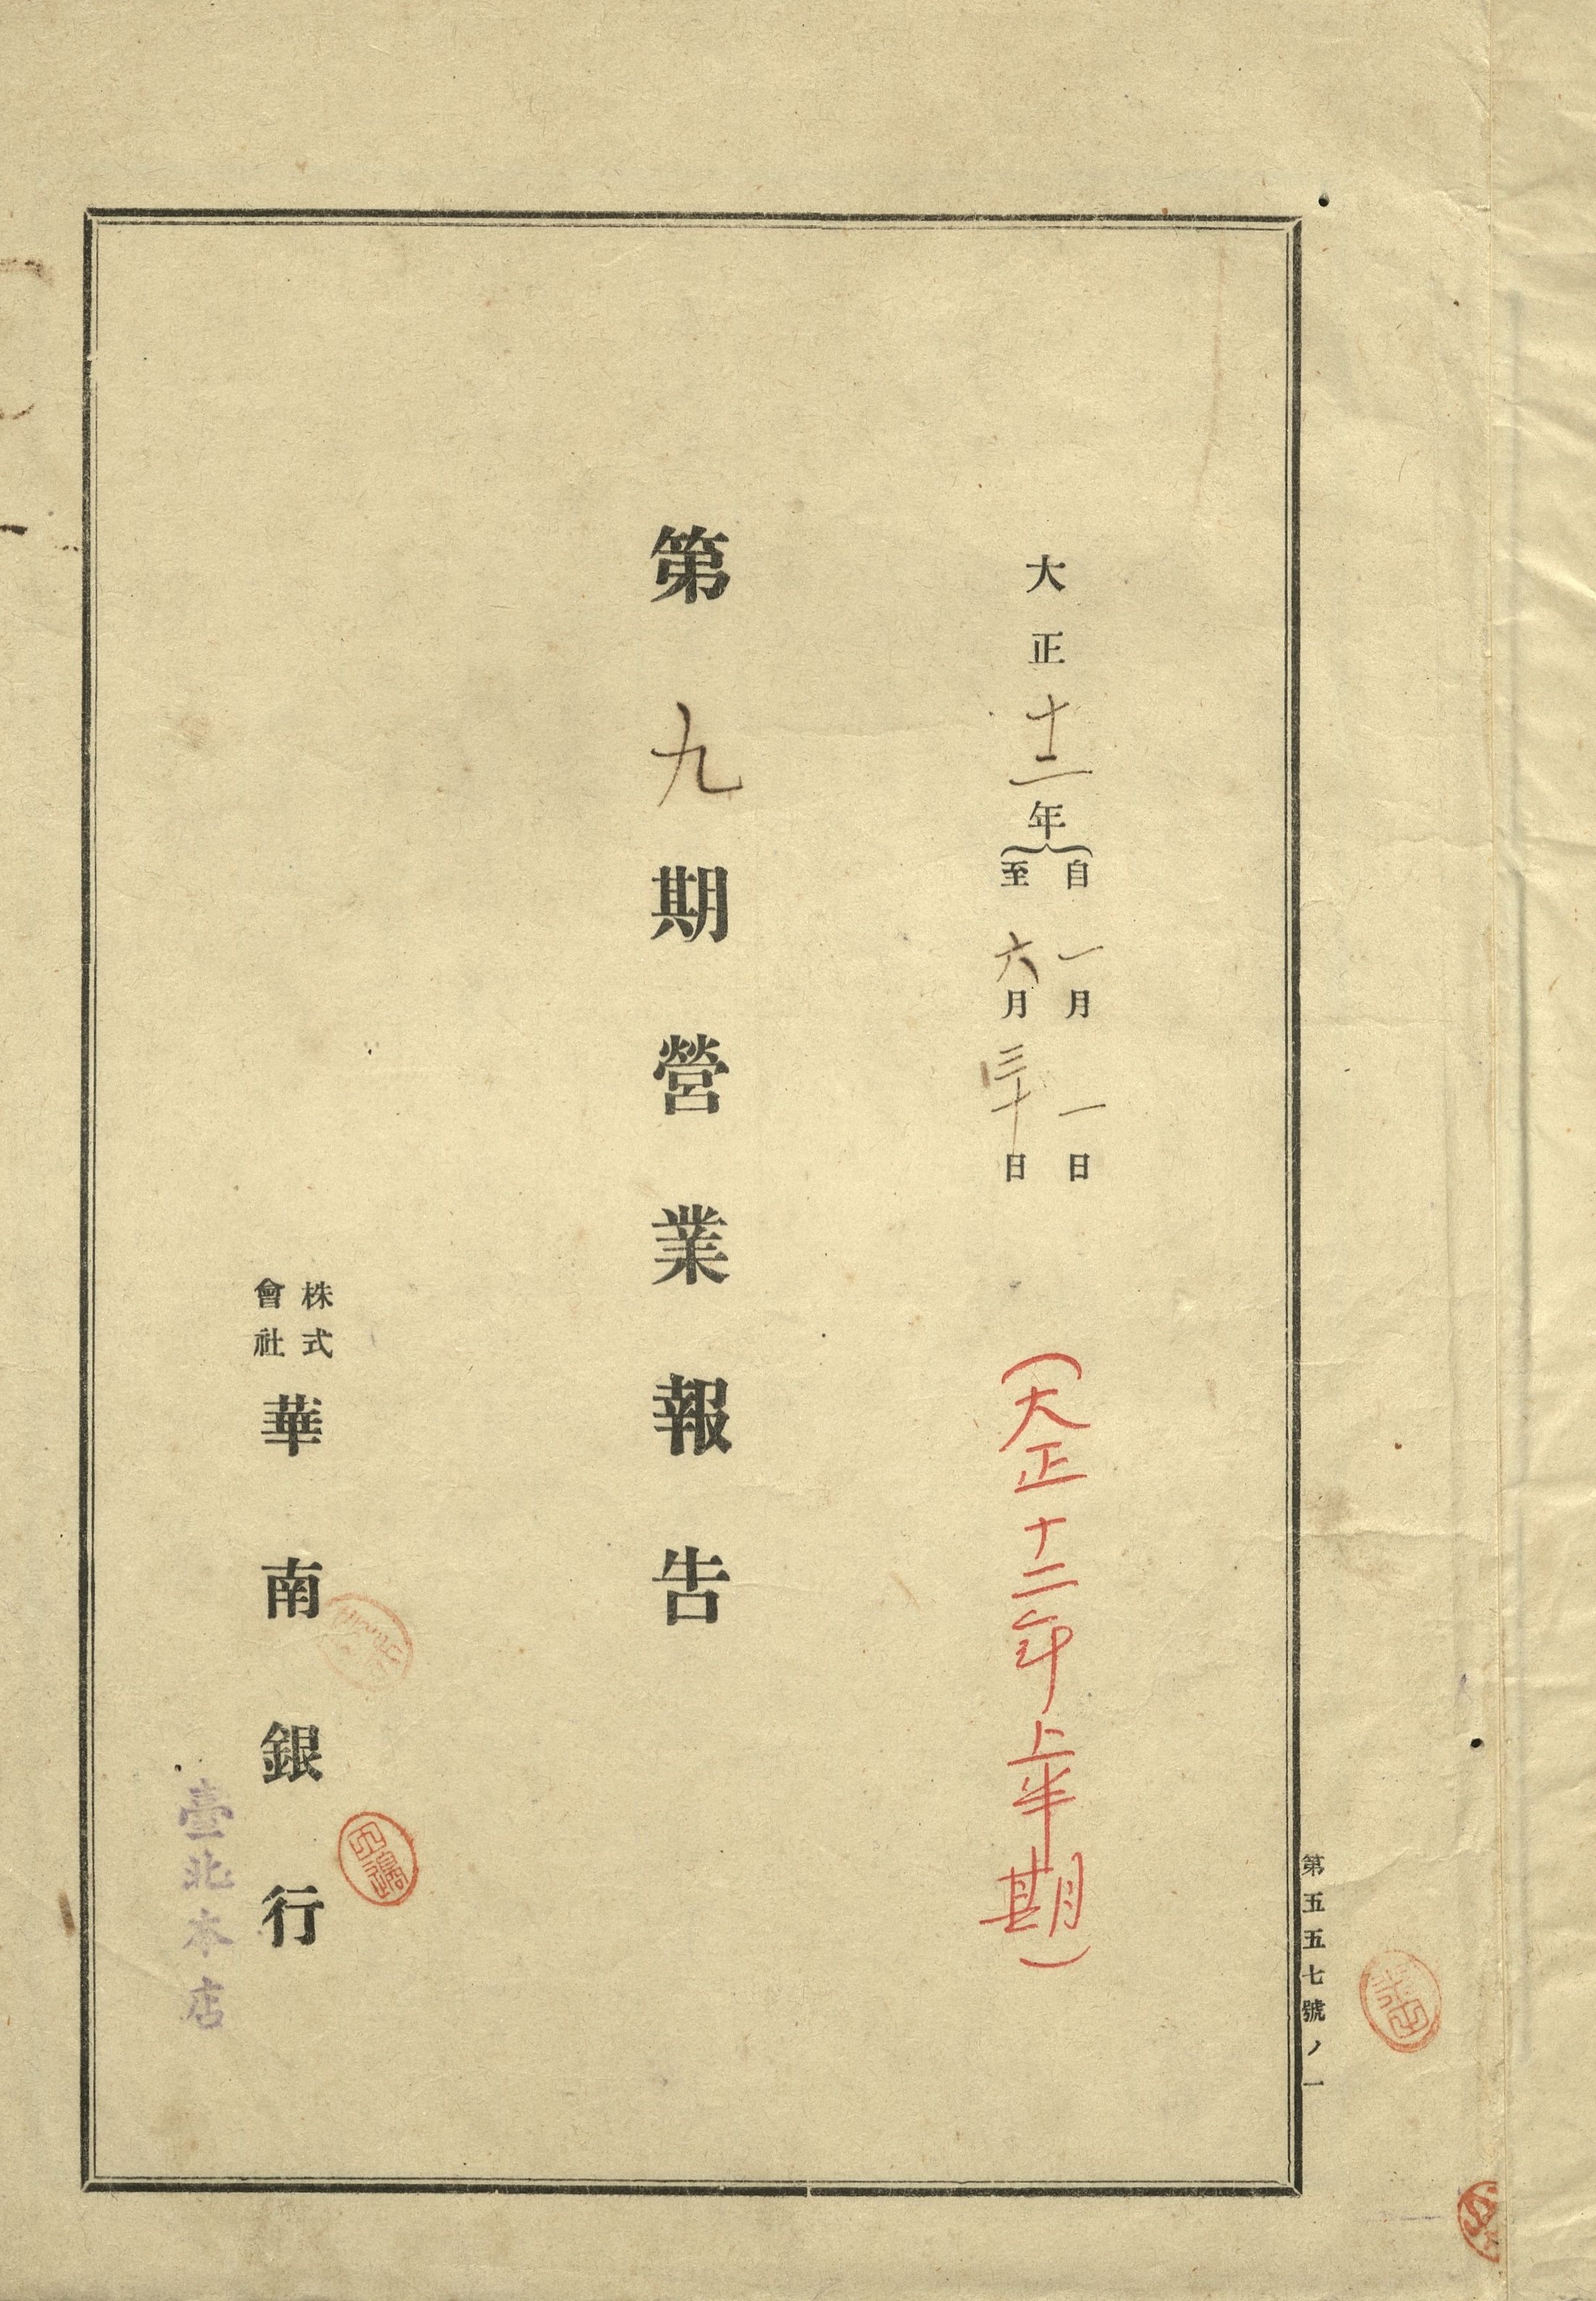 第五五七號ノ一
大正十二年
自一月一日
至六月三十日
(大正十二年上半期)
第九期營業報告
株式會社華南銀行
臺北本店